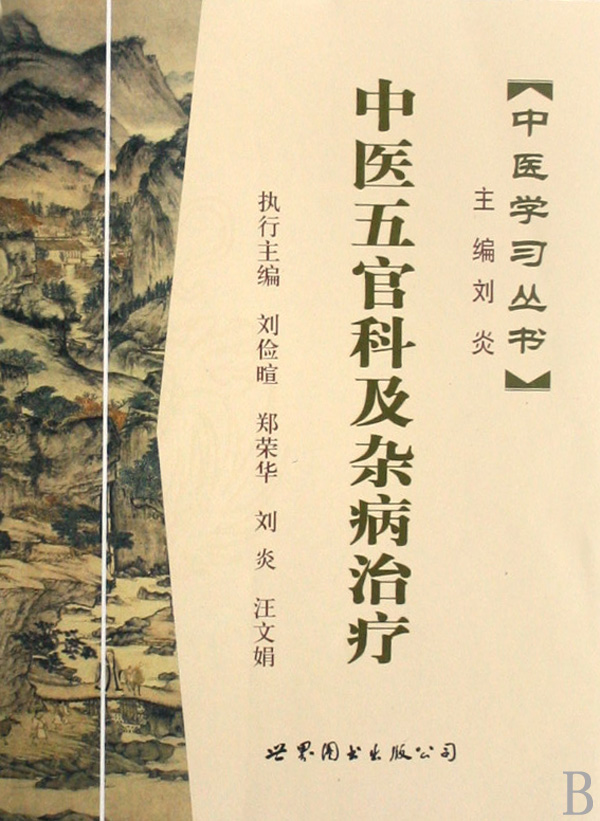 【中医学习丛书】
主编 刘炎
中医五官科及杂病治疗
执行主编 刘俭暄 郑荣华 刘炎 汪文娟
世界图书出版公司
B